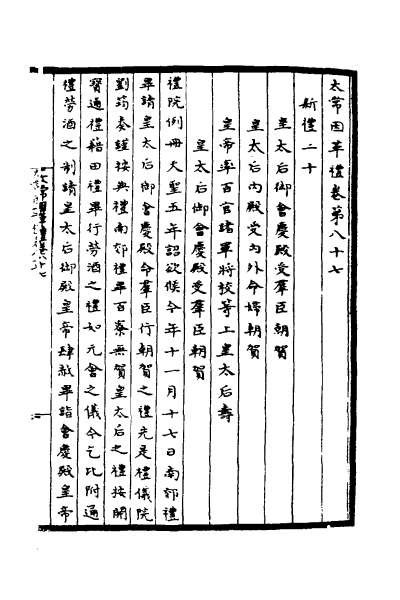 太常因革禮卷第八十七
新禮二十
皇太后御會慶殿受羣臣朝賀
皇太后內殿受內外命婦朝賀
皇帝率百官諸軍將校等上皇太后壽
皇太后御會慶殿受羣臣朝賀
禮院例冊天聖五年詔欲候今年十一月十七日南郊禮
畢請皇太后御會慶殿令羣臣行朝賀之禮先是禮儀院
劉筠奏謹按典禮南郊禮畢百寮無賀皇太后之禮按開
寶通禮籍田禮畢行勞酒之禮如元會之儀今乞比附通
禮勞酒之制請皇太后御殿皇帝肆赦畢詣會慶殿皇帝